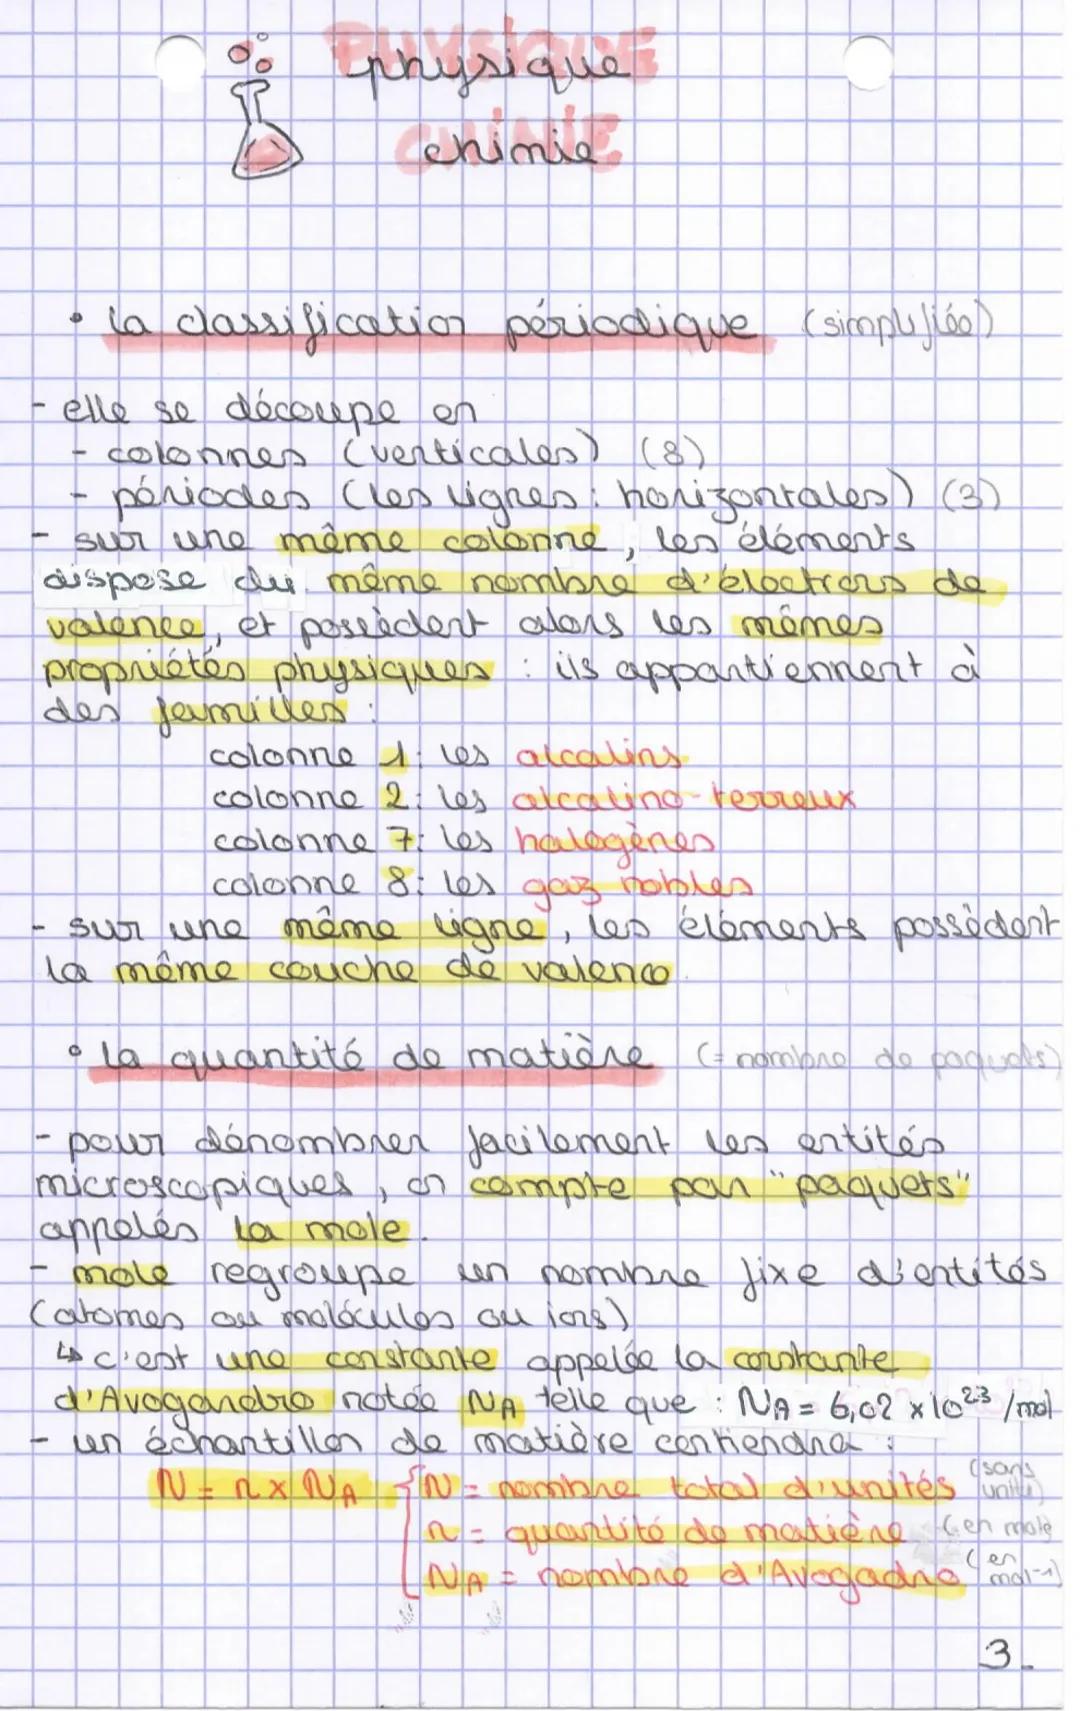 PHYSIQUE
physique
CHIMIE
chimie
• la classification périodique (simplifiée)
- elle se découpe en
- colonnes (verticales) (8)
- périodes (les lignes : horizontales) (3)
- sur une même colonne, les éléments
dispose du même nombre d'électrons de
valence, et possèdent alors les mêmes
propriétés physiques : ils appartiennent à
des familles :
colonne 1: les alcalins
colonne 2: les alcalino-terreux
colonne 7: les halogènes
colonne 8: les gaz nobles
- sur une même ligne, les éléments possèdent
la même couche de valence.
• la quantité de matière (= nombre de paquets)
- pour dénombrer facilement les entités
microscopiques, on compte par "paquets"
appelés la mole.
- mole regroupe un nombre fixe d'entités
(atomes ou molécules ou ions)
↳ c'est une constante appelée la constante
d'Avogandro notée NA telle que : NA = 6,02 x 10²³ /mol
- un échantillon de matière contiendra :
N = n x NA { N = nombre total d'unités (sans unité)
n = quantité de matière (en mole
NA = nombre d'Avogadro (en mol-1)
3.